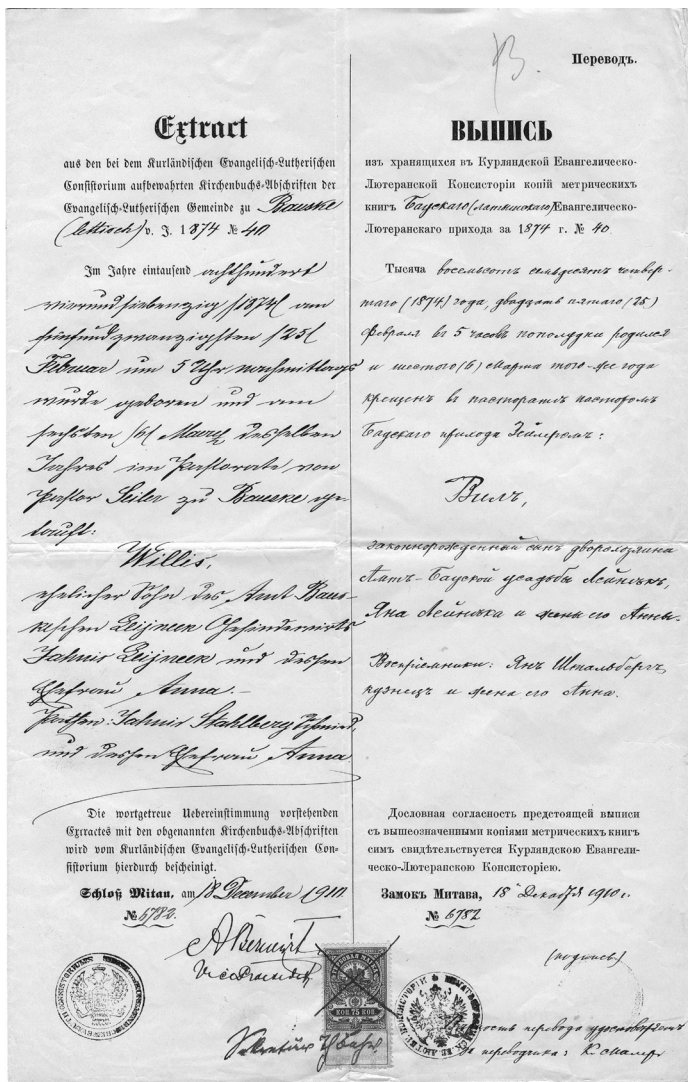 Переводъ.
Extract
aus den bei dem Kurländischen Evangelisch-Lutherischen
Consistorium aufbewahrten Kirchenbuchs-Abschriften der
Evangelisch-Lutherischen Gemeinde zu Bauske
(lettisch) v. J. 1874 № 40
Im Jahre eintausend achthundert
vierundsiebenzig /1874/ am
fünfundzwanzigsten /25/
Februar um 5 Uhr nachmittags
wurde geboren und am
sechsten /6/ Maerz desselben
Jahres im Pastorate von
Pastor Seiler zu Bauske ge-
tauft:
Willis,
ehelicher Sohn des Amt Baus-
kischen Leijneek Gesindewirts
Jahnis Leijneek und dessen
Ehefrau Anna.-
Pathen: Jahnis Stahlberg, Schmied,
und dessen Ehefrau Anna
Die wortgetreue Uebereinstimmung vorstehenden
Extractes mit den obgenannten Kirchenbuchs-Abschriften
wird vom Kurländischen Evangelisch-Lutherischen Con-
sistorium hierdurch bescheinigt.
Schloß Mitau, am 18 December 1910
№ 6782.
Secretär
ВЫПИСЬ
изъ хранящихся въ Курляндской Евангелическо-
Лютеранской Консисторіи копій метрическихъ
книгъ Баускаго (латышскаго) Евангелическо-
Лютеранскаго прихода за 1874 г. № 40
Тысяча восемьсотъ семьдесятъ четвер-
таго (1874) года, двадцать пятаго (25)
Февраля въ 5 часовъ пополудни родился
и шестого (6) Марта того-же года
крещенъ въ пасторатѣ пасторомъ
Баускаго прихода Зейлеромъ:
Вилъ,
законнорожденный сынъ дворохозяина
Амтъ-Бауской усадьбы Лейнѣкъ,
Яна Лейнѣка и жены его Анны.
Воспріемники: Янъ Штальбергъ,
кузнецъ и жена его Анна.
Дословная согласность предстоящей выписи
съ вышеозначенными копіями метрическихъ книгъ
симъ свидѣтельствуется Курляндскою Евангели-
ческо-Лютеранскою Консисторіею.
Замокъ Митава, 18 Декабря 1910 г.
№ 6782
(подпись)
КОП 75 КОП
перевода удостовѣряетъ
переводчика: